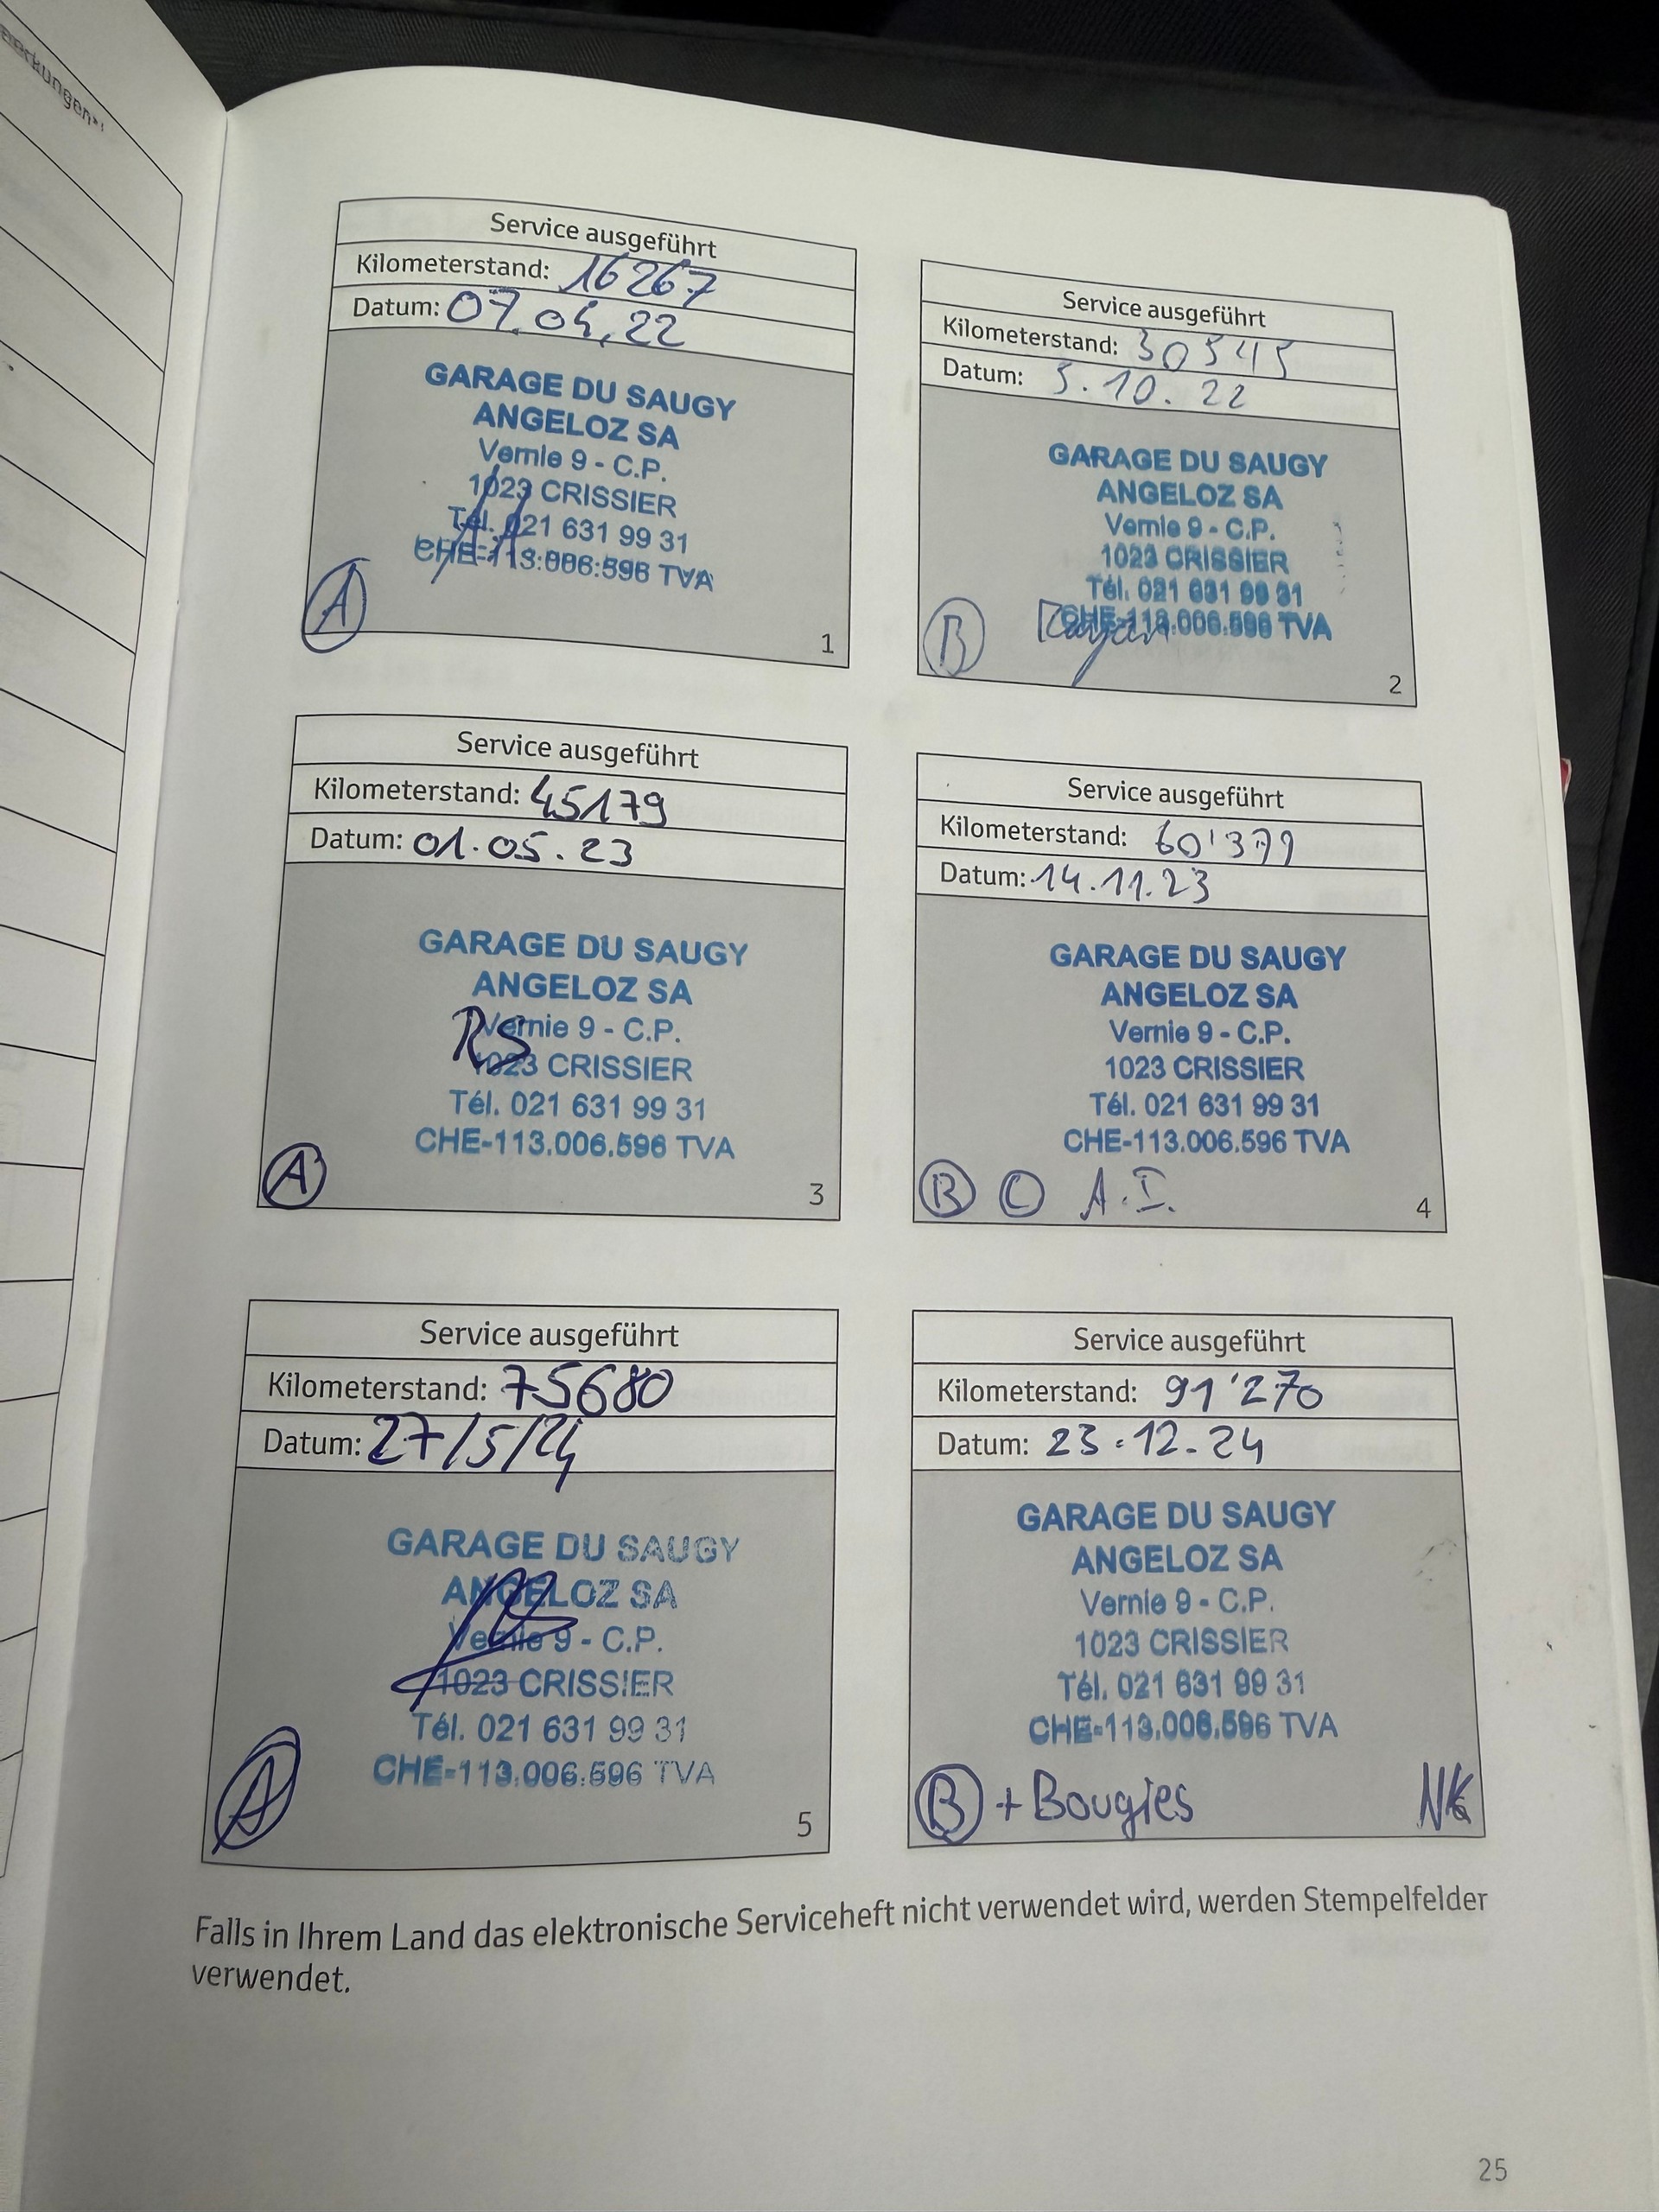 eckungen
Service ausgeführt
Kilometerstand: 16267
Datum: 07.04.22
GARAGE DU SAUGY
ANGELOZ SA
Vernie 9 - C.P.
1023 CRISSIER
Tél. 021 631 99 31
CHE-113.006.596 TVA
A
1
Service ausgeführt
Kilometerstand: 30545
Datum: 5.10.22
GARAGE DU SAUGY
ANGELOZ SA
Vernie 9 - C.P.
1023 CRISSIER
Tél. 021 631 99 31
CHE-113.006.596 TVA
B
2
Service ausgeführt
Kilometerstand: 45179
Datum: 01.05.23
GARAGE DU SAUGY
ANGELOZ SA
RS Vernie 9 - C.P.
1023 CRISSIER
Tél. 021 631 99 31
CHE-113.006.596 TVA
A
3
Service ausgeführt
Kilometerstand: 60'379
Datum: 14.11.23
GARAGE DU SAUGY
ANGELOZ SA
Vernie 9 - C.P.
1023 CRISSIER
Tél. 021 631 99 31
CHE-113.006.596 TVA
B C A.I.
4
Service ausgeführt
Kilometerstand: 75680
Datum: 27/5/24
GARAGE DU SAUGY
ANGELOZ SA
Vernie 9 - C.P.
1023 CRISSIER
Tél. 021 631 99 31
CHE-113.006.596 TVA
A
5
Service ausgeführt
Kilometerstand: 91'270
Datum: 23.12.24
GARAGE DU SAUGY
ANGELOZ SA
Vernie 9 - C.P.
1023 CRISSIER
Tél. 021 631 99 31
CHE-113.006.596 TVA
B + Bougies NK
Falls in Ihrem Land das elektronische Serviceheft nicht verwendet wird, werden Stempelfelder
verwendet.
25